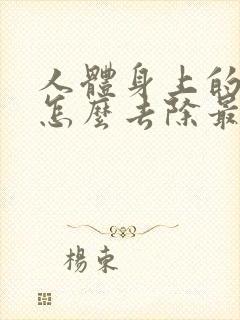 人體身上的
怎麼去除最
楊束